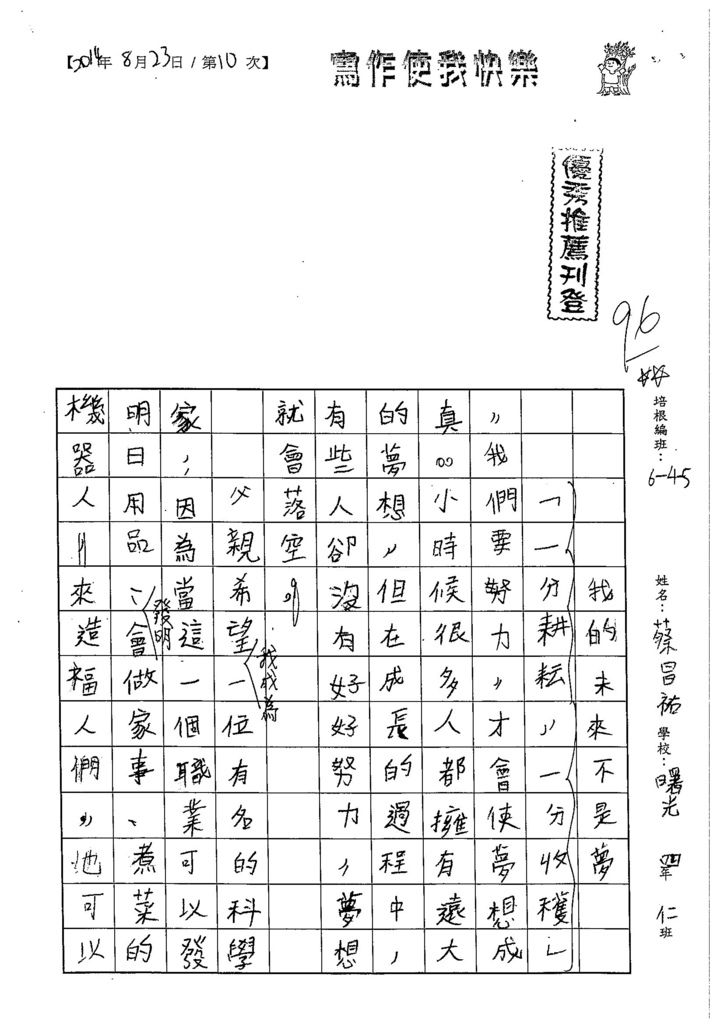 【2014年8月23日/第10次】
寫作使我快樂
優秀推薦刊登
96
培根編班：
6-45
姓名：蔡昌祐
學校：曙光
四年 仁班
我的未來不是夢
「一分耕耘，一分收穫」
，我們要努力，才會使夢想成
真。小時候很多人都擁有遠大
的夢想，但在成長的過程中，
有些人卻沒有好好努力，夢想
就會落空。
父親希望我成為一位有名的科學
家，因為當這一個職業可以發
明日用品、發明會做家事、煮菜的
機器人，來造福人們，也可以